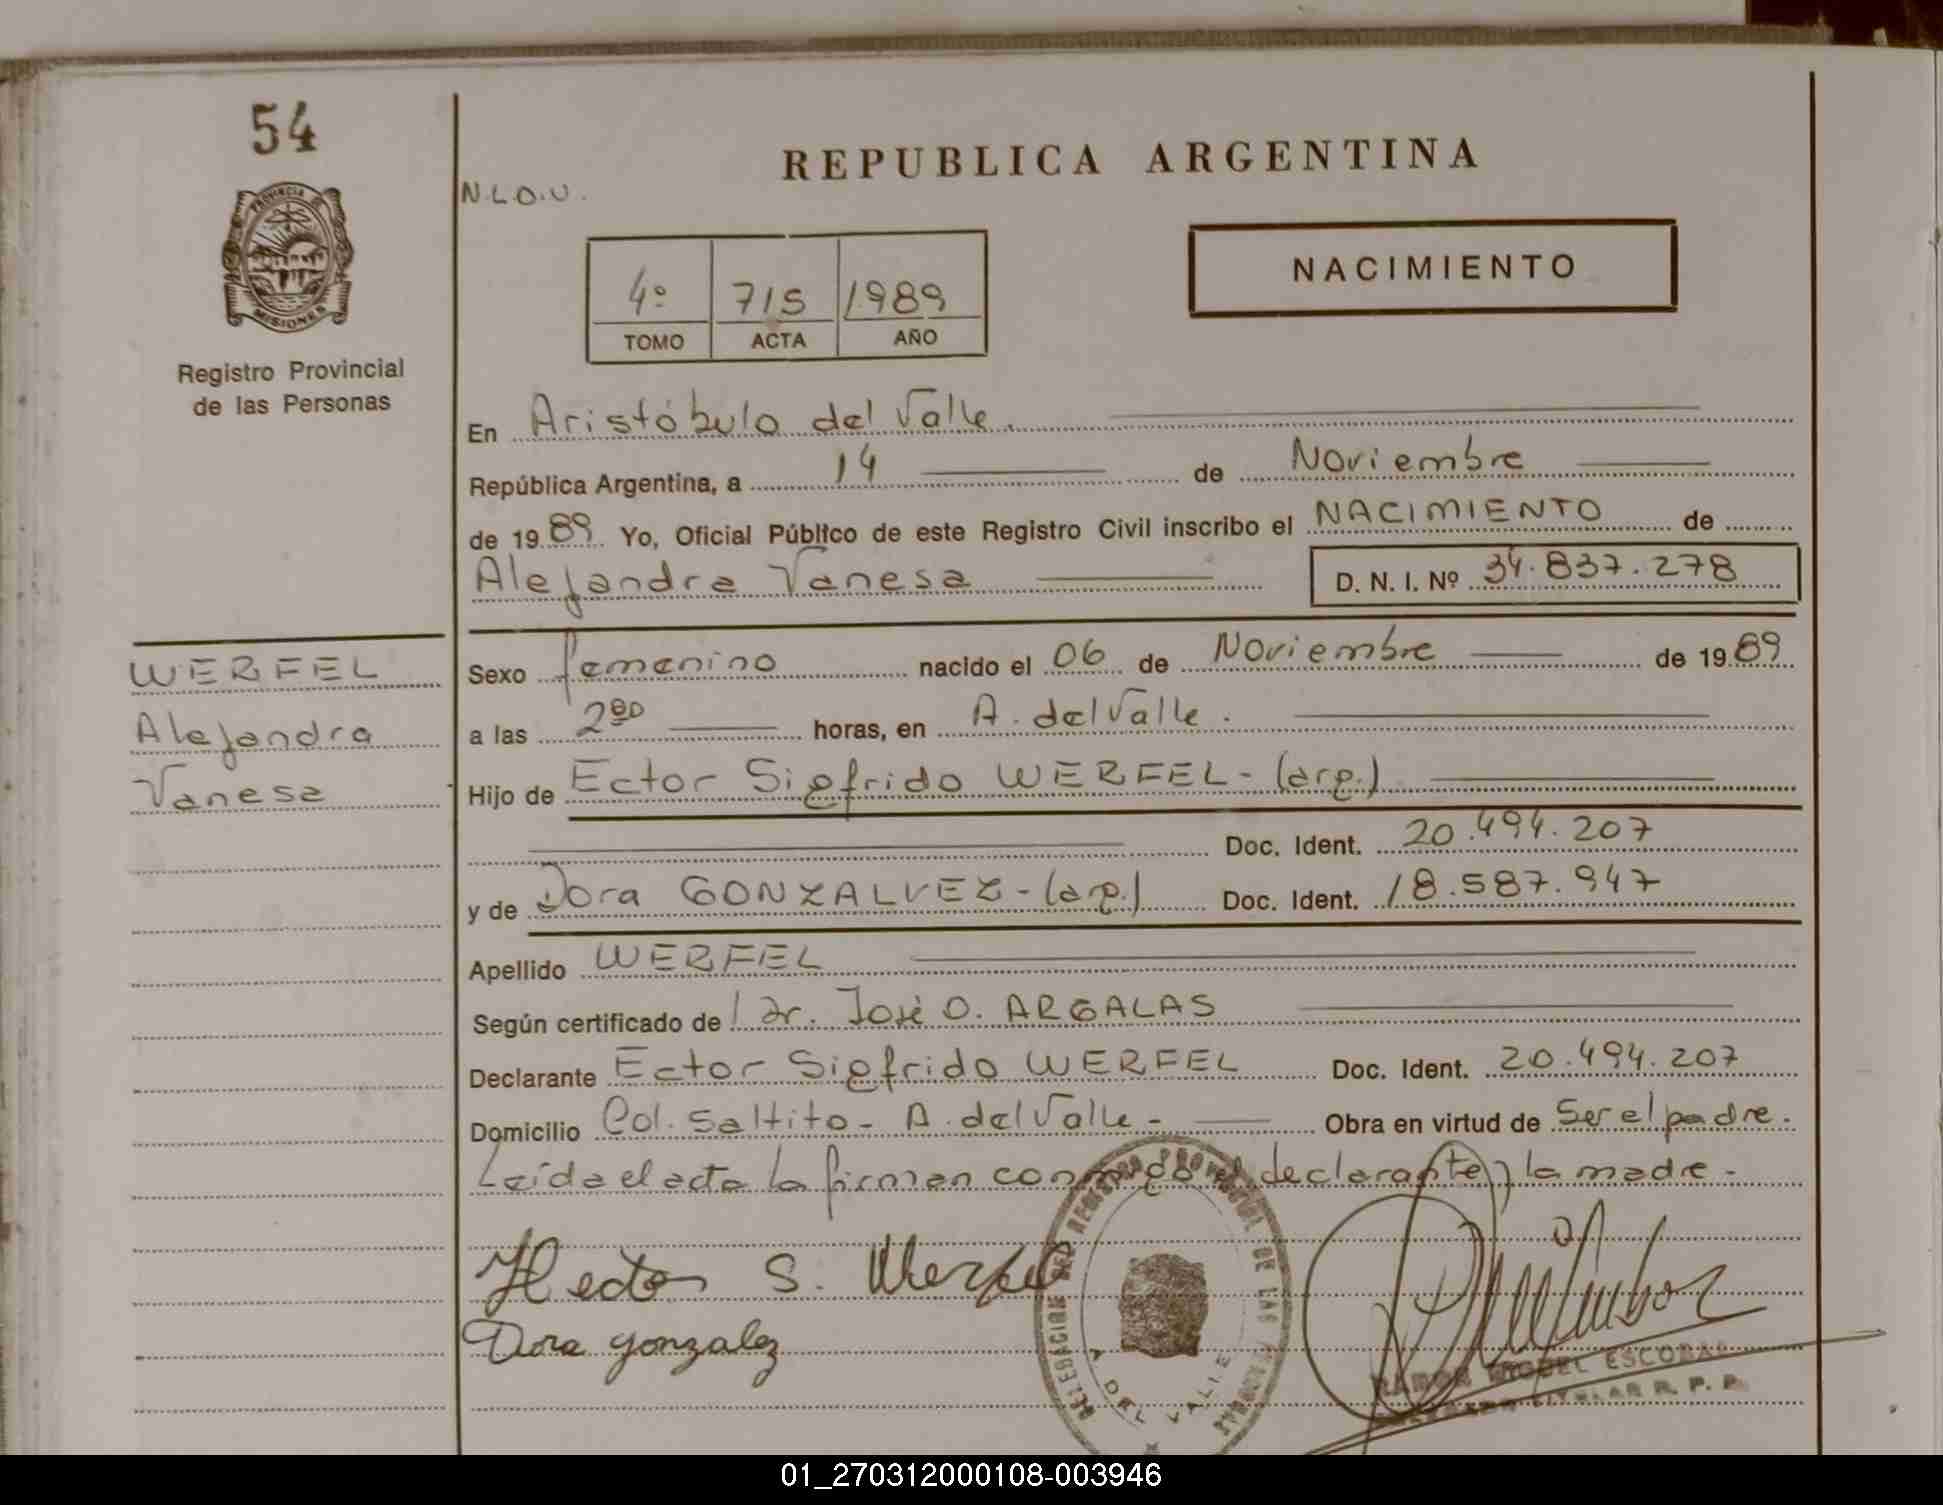 54
PROVINCIA
MISIONES
Registro Provincial
de las Personas
WERFEL
Alejandra
Vanesa
REPUBLICA ARGENTINA
N.L.O.U.
4º 715 1989
TOMO ACTA AÑO
NACIMIENTO
En Aristóbulo del Valle.
República Argentina, a 14 de Noviembre
de 1989 Yo, Oficial Público de este Registro Civil inscribo el NACIMIENTO de
Alejandra Vanesa D. N. I. Nº 34.837.278
Sexo femenino nacido el 06 de Noviembre de 1989
a las 2⁰⁰ horas, en A. del Valle.
Hijo de Ector Sigfrido WERFEL - (arg.)
Doc. Ident. 20.494.207
y de Dora GONZALVEZ - (arg.) Doc. Ident. 18.587.947
Apellido WERFEL
Según certificado de Dr. José O. ARGALAS
Declarante Ector Sigfrido WERFEL Doc. Ident. 20.494.207
Domicilio Col. Saltito - A. del Valle - Obra en virtud de Ser el padre.
Leída el acta la firman conmigo el declarante y la madre -
Hector S. Werfel
Dora gonzalez
DELEGACION DEL REGISTRO PROVINCIAL DE LAS PERSONAS
A DEL VALLE
RAMON MIGUEL ESCOBAR
TITULAR R. P. P.
01_270312000108-003946